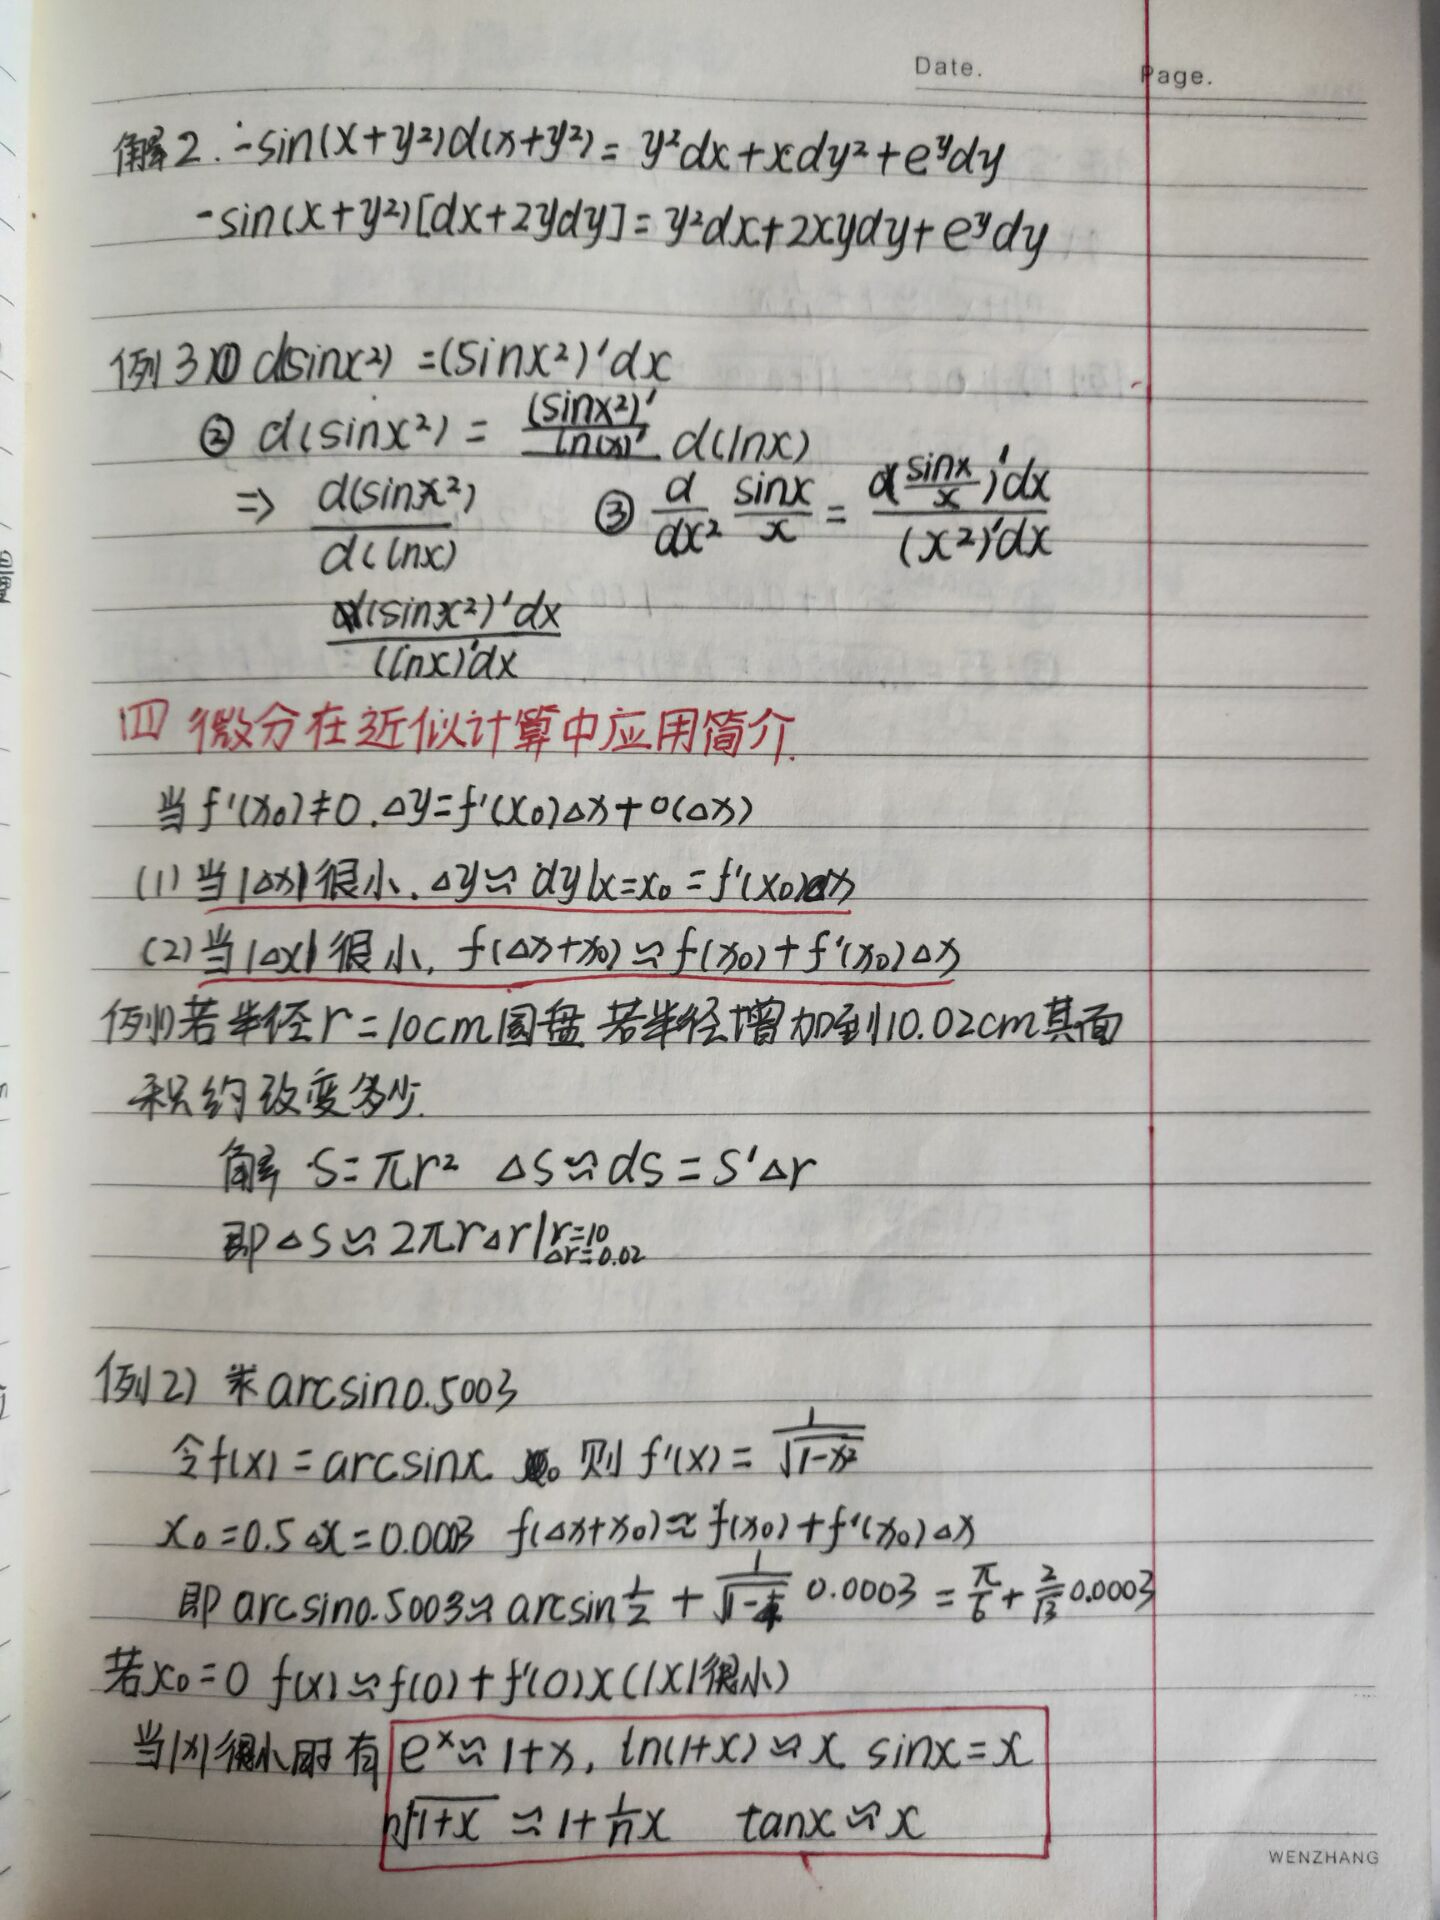 Date.
Page.
解2. ∴-sin(x+y²)d(x+y²)= y²dx+xdy²+e^y dy
-sin(x+y²)[dx+2ydy]= y²dx+2xydy+e^y dy
例3 ① d(sinx²) =(sinx²)'dx
② d(sinx²) = (sinx²)'/ln(x)' d(lnx)
⇒ d(sinx²)/d(lnx) ③ d/dx² sinx/x = d(sinx/x)'dx/(x²)'dx
(sinx²)'dx/(lnx)'dx
四 微分在近似计算中应用简介.
当f'(x₀)≠0.△y=f'(x₀)△x+o(△x)
(1)当|△x|很小.△y≈dy|x=x₀=f'(x₀)△x
(2)当|△x|很小,f(△x+x₀)≈f(x₀)+f'(x₀)△x
例1)若半径r=10cm圆盘 若半径增加到10.02cm其面
积约改变多少.
解 S=πr² △S≈ds=S'△r
即△S≈2πr△r|r=10 △r=0.02
例2) 求arcsin0.5003
令f(x)=arcsinx 则f'(x)=1/√(1-x²)
x₀=0.5 △x=0.0003 f(△x+x₀)≈f(x₀)+f'(x₀)△x
即arcsin0.5003≈arcsin1/2+1/√(1-1/4) 0.0003=π/6+2/√3 0.0003
若x₀=0 f(x)≈f(0)+f'(0)x(|x|很小)
当|x|很小时有 e^x≈1+x, ln(1+x)≈x sinx=x
ⁿ√(1+x)≈1+1/n x tanx≈x
WENZHANG